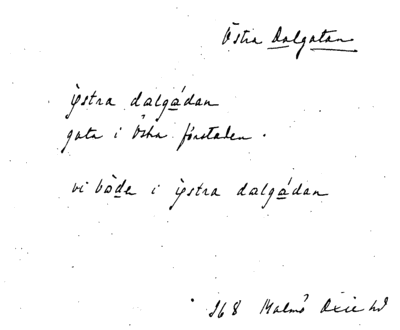 Östra Dalgatan
ỳstra dalgádan
gata i Östra förstaden.
vi bòde i ỳstra dalgádan
268 Malmö Oxie hd